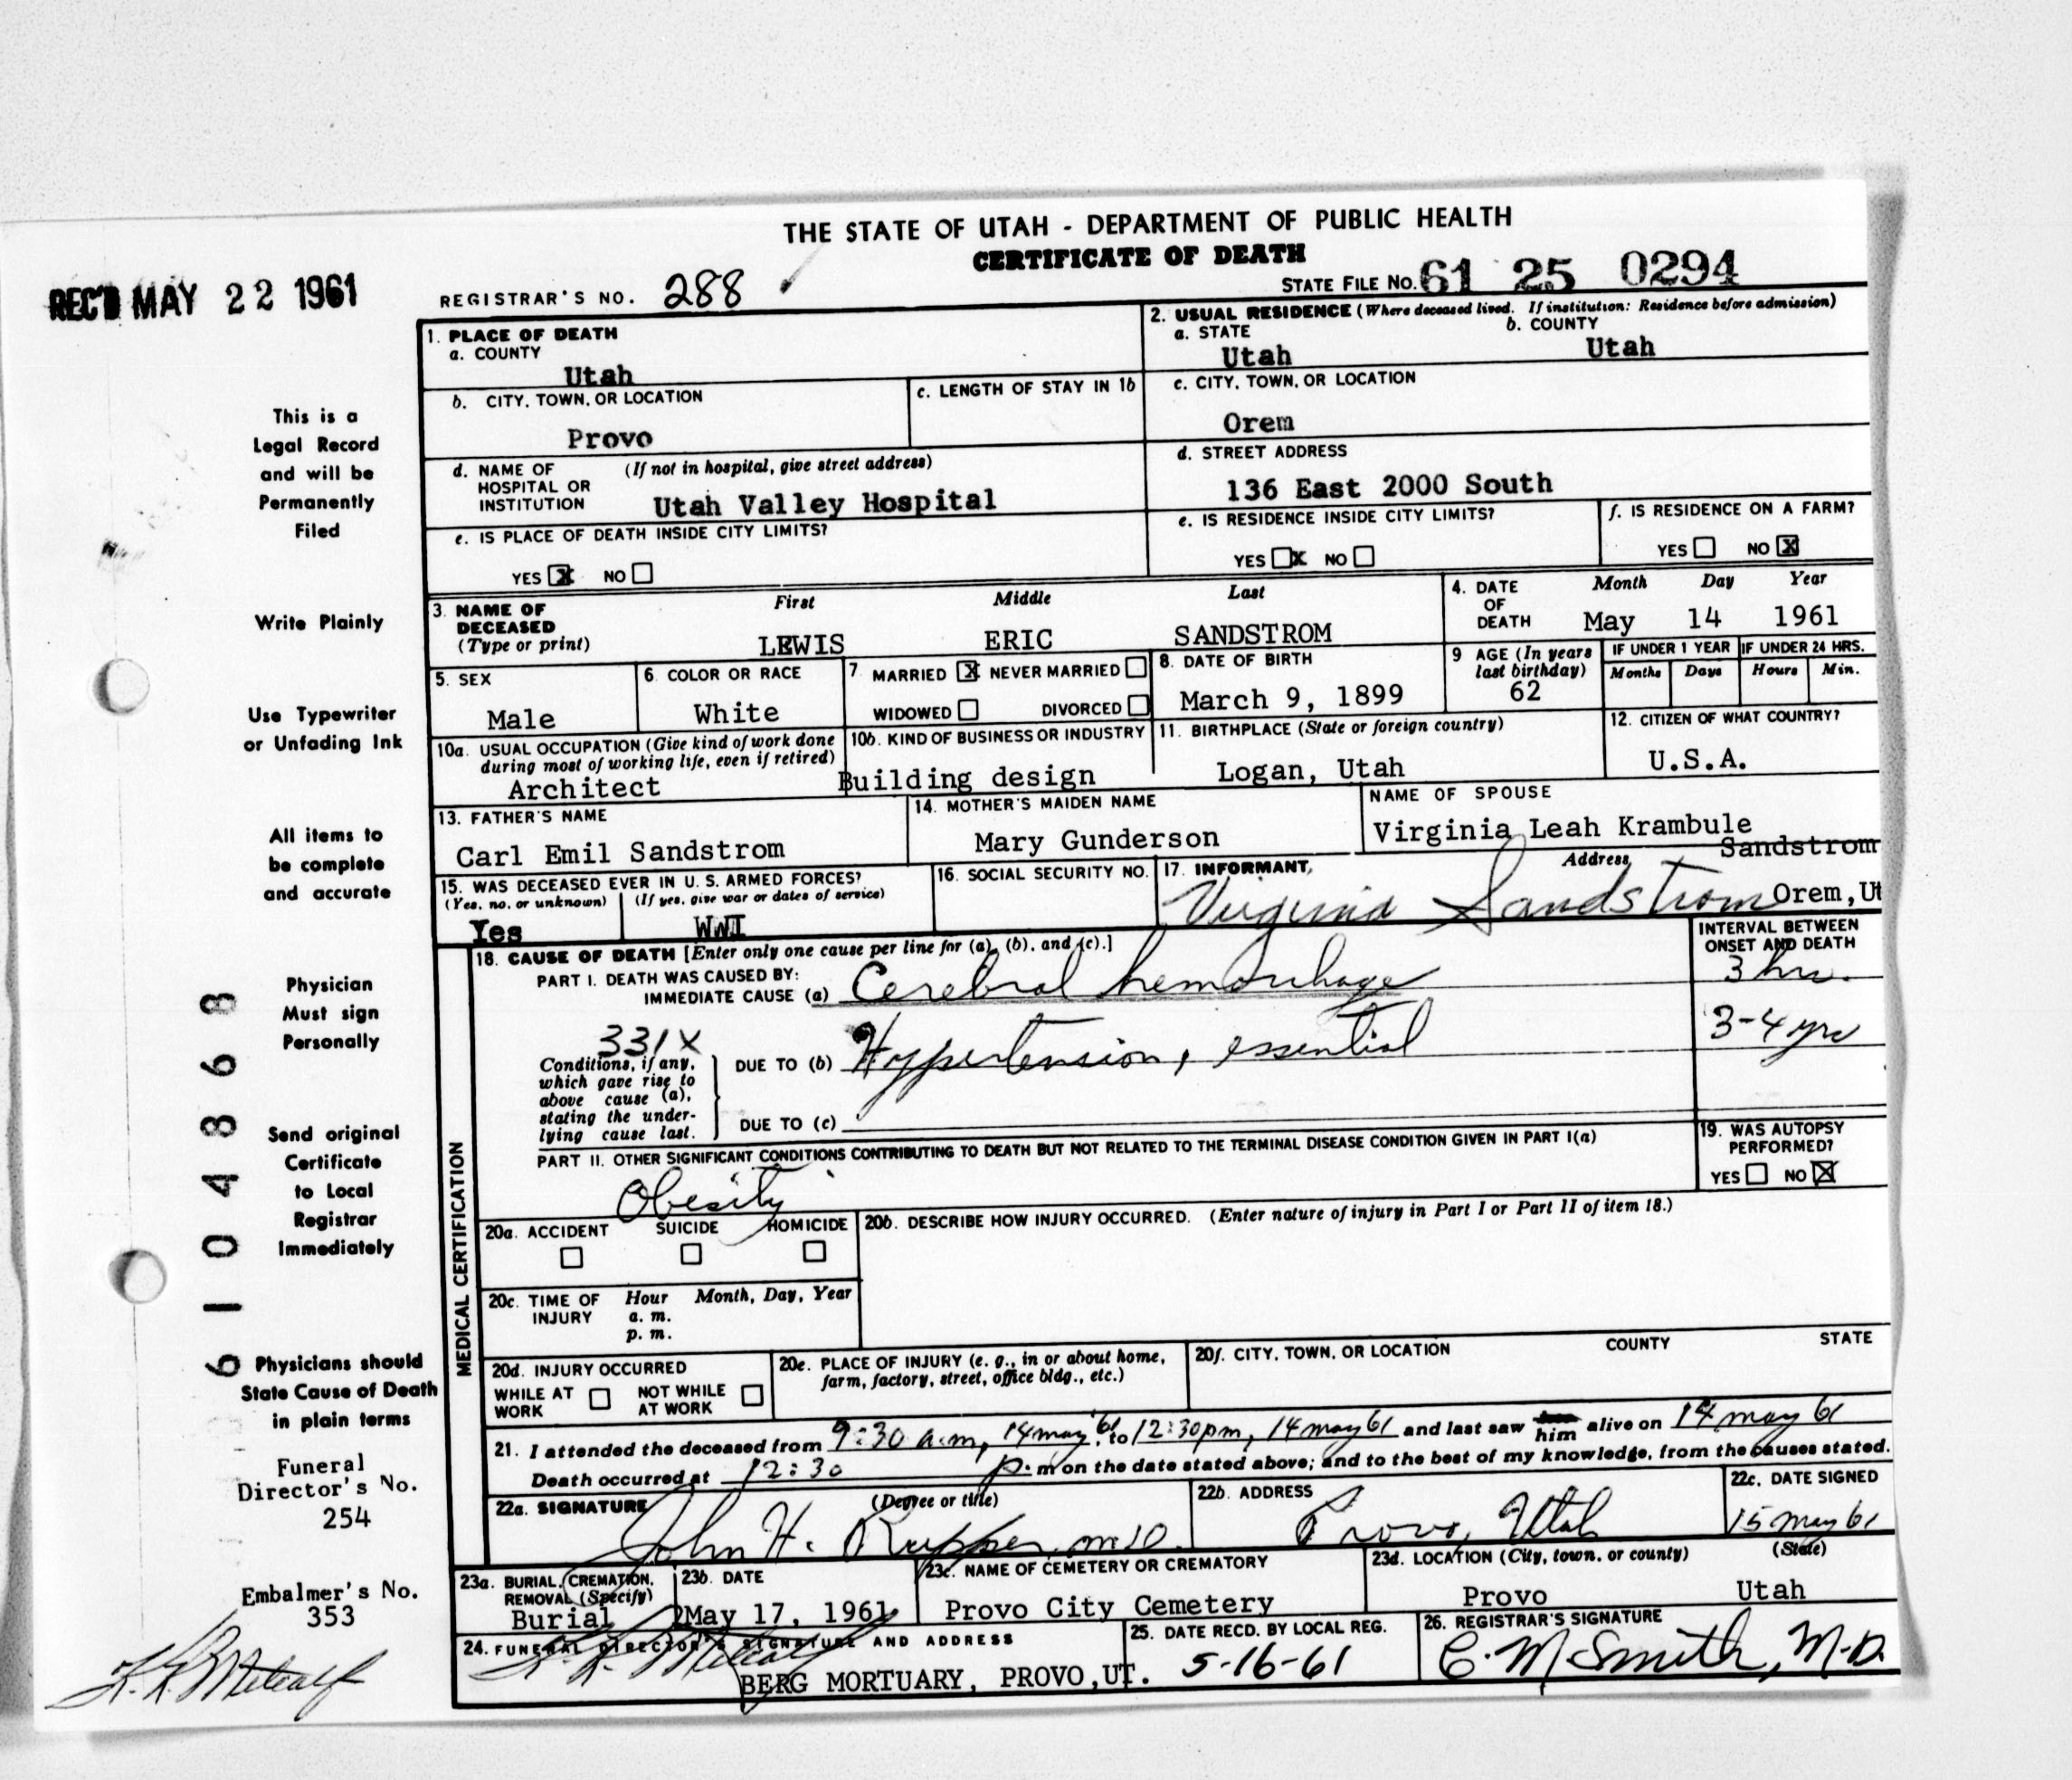 THE STATE OF UTAH - DEPARTMENT OF PUBLIC HEALTH
CERTIFICATE OF DEATH
REC'D MAY 22 1961
REGISTRAR'S NO. 288
STATE FILE NO. 61 25 0294
1. PLACE OF DEATH
a. COUNTY
Utah
2. USUAL RESIDENCE (Where deceased lived. If institution: Residence before admission)
a. STATE
Utah
b. COUNTY
Utah
b. CITY, TOWN, OR LOCATION
Provo
c. LENGTH OF STAY IN 1b
c. CITY, TOWN, OR LOCATION
Orem
d. NAME OF HOSPITAL OR INSTITUTION
(If not in hospital, give street address)
Utah Valley Hospital
d. STREET ADDRESS
136 East 2000 South
e. IS PLACE OF DEATH INSIDE CITY LIMITS?
YES X NO
e. IS RESIDENCE INSIDE CITY LIMITS?
YES X NO
f. IS RESIDENCE ON A FARM?
YES NO X
3. NAME OF DECEASED
(Type or print)
First Middle Last
LEWIS ERIC SANDSTROM
4. DATE OF DEATH
Month Day Year
May 14 1961
5. SEX
Male
6. COLOR OR RACE
White
7 MARRIED X NEVER MARRIED
WIDOWED DIVORCED
8. DATE OF BIRTH
March 9, 1899
9 AGE (In years last birthday)
62
IF UNDER 1 YEAR
Months Days
IF UNDER 24 HRS.
Hours Min.
10a. USUAL OCCUPATION (Give kind of work done during most of working life, even if retired)
Architect
10b. KIND OF BUSINESS OR INDUSTRY
Building design
11. BIRTHPLACE (State or foreign country)
Logan, Utah
12. CITIZEN OF WHAT COUNTRY?
U.S.A.
13. FATHER'S NAME
Carl Emil Sandstrom
14. MOTHER'S MAIDEN NAME
Mary Gunderson
NAME OF SPOUSE
Virginia Leah Krambule
Sandstrom
15. WAS DECEASED EVER IN U. S. ARMED FORCES?
(Yes, no, or unknown) (If yes, give war or dates of service)
Yes WWI
16. SOCIAL SECURITY NO.
17. INFORMANT Address
Virginia Sandstrom Orem, Ut
MEDICAL CERTIFICATION
18. CAUSE OF DEATH [Enter only one cause per line for (a), (b), and (c).]
INTERVAL BETWEEN ONSET AND DEATH
PART I. DEATH WAS CAUSED BY:
IMMEDIATE CAUSE (a) Cerebral hemorrhage
3 hrs.
331X
Conditions, if any, which gave rise to above cause (a), stating the underlying cause last.
DUE TO (b) Hypertension, essential
3-4 yrs
DUE TO (c)
PART II. OTHER SIGNIFICANT CONDITIONS CONTRIBUTING TO DEATH BUT NOT RELATED TO THE TERMINAL DISEASE CONDITION GIVEN IN PART I(a)
Obesity
19. WAS AUTOPSY PERFORMED?
YES NO X
20a. ACCIDENT SUICIDE HOMICIDE
20b. DESCRIBE HOW INJURY OCCURRED. (Enter nature of injury in Part I or Part II of item 18.)
20c. TIME OF INJURY
Hour Month, Day, Year
a. m.
p. m.
20d. INJURY OCCURRED
WHILE AT WORK NOT WHILE AT WORK
20e. PLACE OF INJURY (e. g., in or about home, farm, factory, street, office bldg., etc.)
20f. CITY, TOWN, OR LOCATION COUNTY STATE
21. I attended the deceased from 9:30 a.m, 14 may '61, to 12:30pm, 14 may 61 and last saw him alive on 14 may 61
Death occurred at 12:30 p. m on the date stated above; and to the best of my knowledge, from the causes stated.
22a. SIGNATURE (Degree or title)
John H. Rupper, M.D.
22b. ADDRESS
Provo, Utah
22c. DATE SIGNED
15 may 61
23a. BURIAL, CREMATION, REMOVAL (Specify)
Burial
23b. DATE
May 17, 1961
23c. NAME OF CEMETERY OR CREMATORY
Provo City Cemetery
23d. LOCATION (City, town, or county) (State)
Provo Utah
24. FUNERAL DIRECTOR'S SIGNATURE AND ADDRESS
BERG MORTUARY, PROVO,UT.
25. DATE RECD. BY LOCAL REG.
5-16-61
26. REGISTRAR'S SIGNATURE
C. M Smith, M.D.
This is a
Legal Record
and will be
Permanently
Filed
Write Plainly
Use Typewriter
or Unfading Ink
All items to
be complete
and accurate
Physician
Must sign
Personally
Send original
Certificate
to Local
Registrar
Immediately
Physicians should
State Cause of Death
in plain terms
Funeral
Director's No.
254
Embalmer's No.
353
Metcalf
61 04868